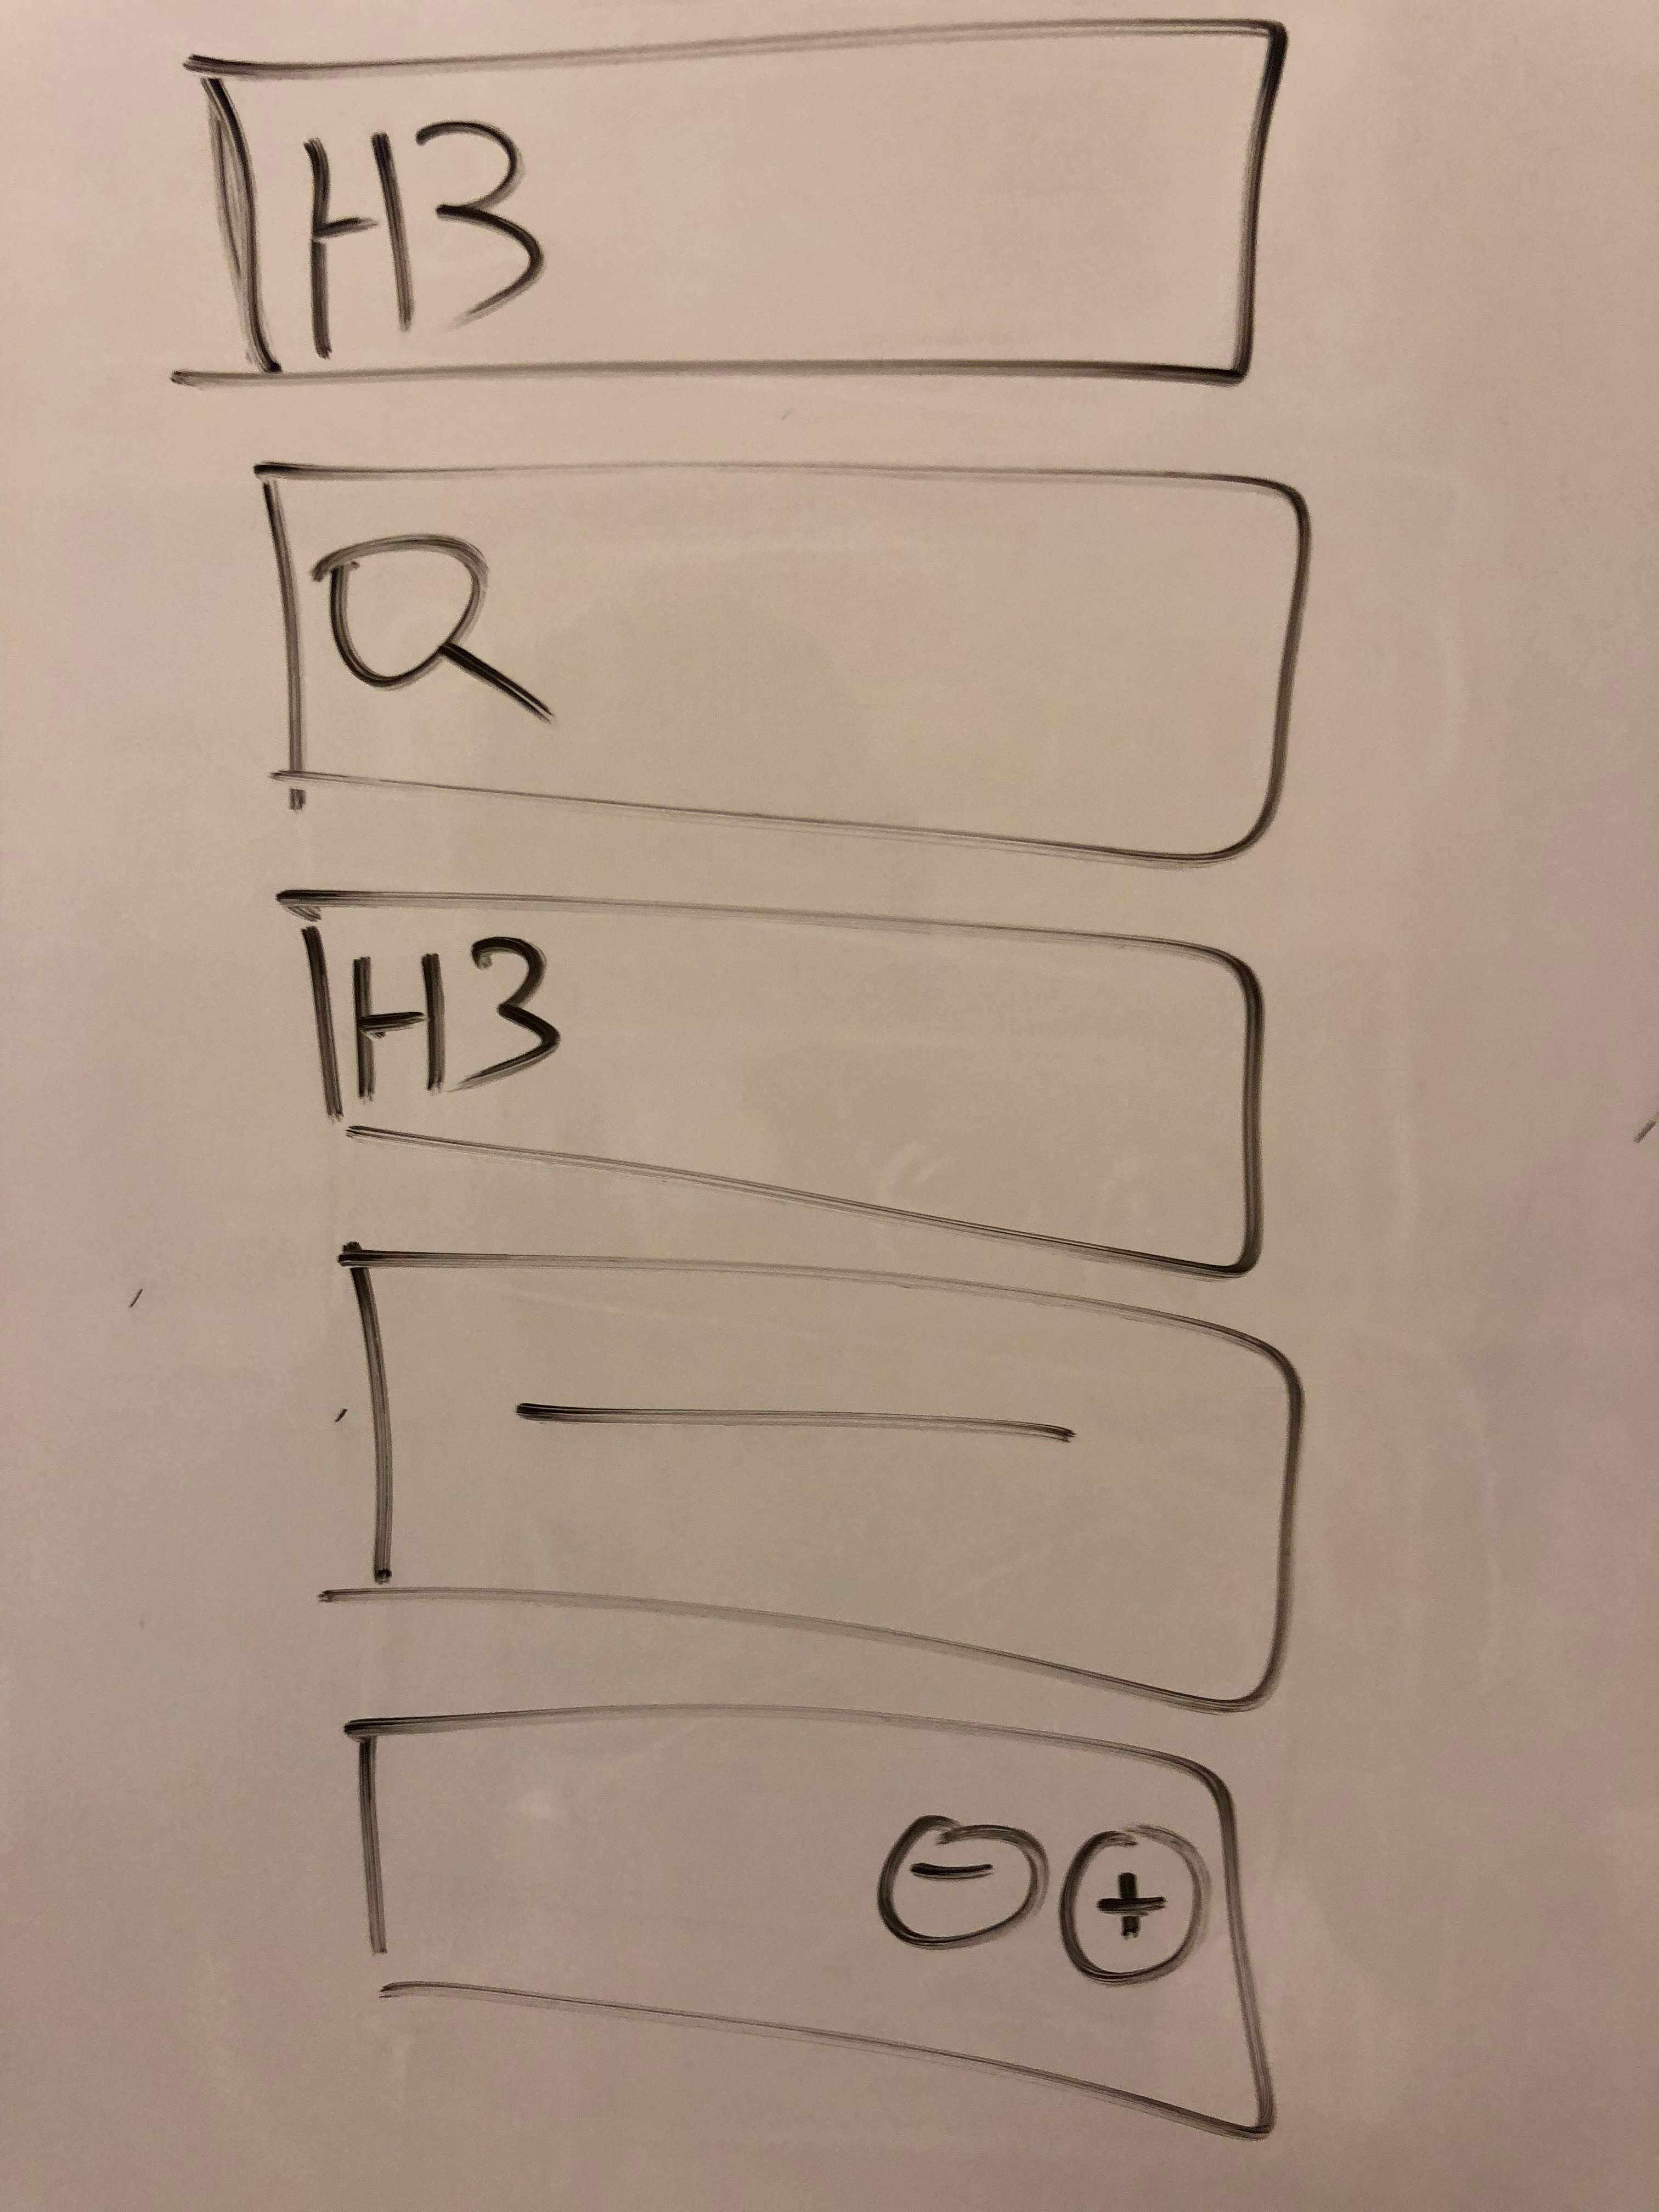 H3
H3
-
+